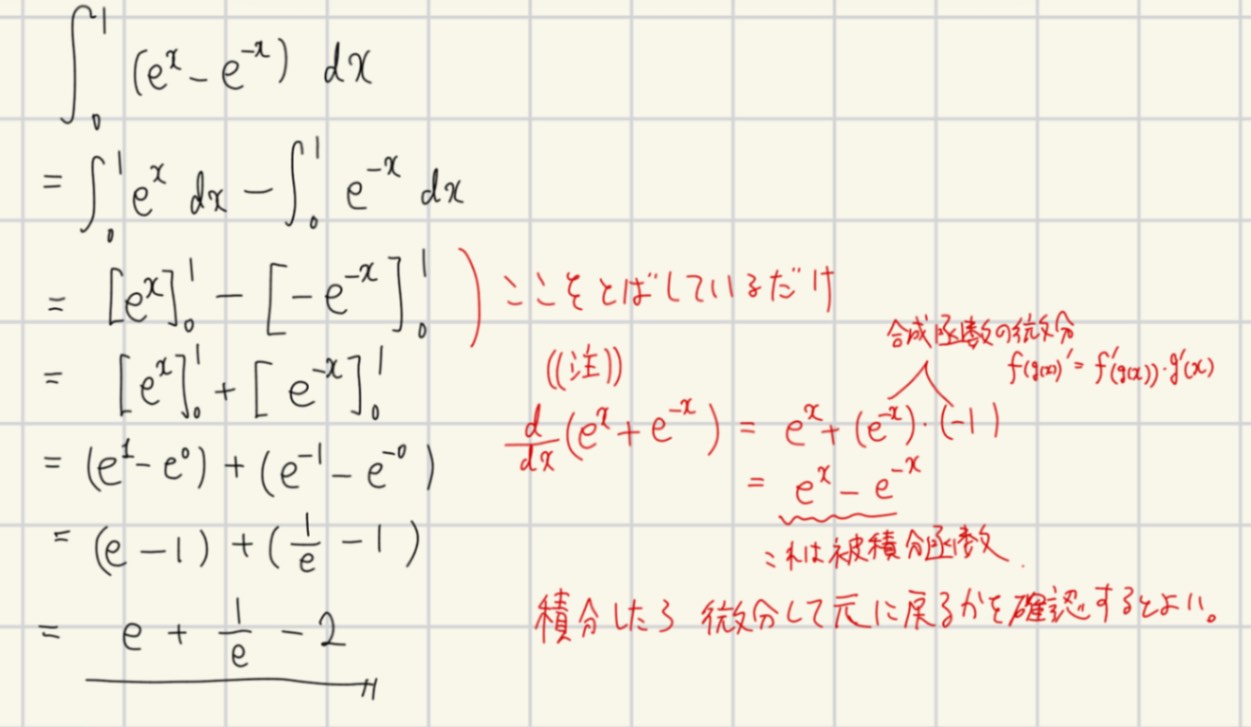 ∫₀¹ (eˣ - e⁻ˣ) dx
= ∫₀¹ eˣ dx - ∫₀¹ e⁻ˣ dx
= [eˣ]₀¹ - [-e⁻ˣ]₀¹
ここをとばしているだけ
= [eˣ]₀¹ + [e⁻ˣ]₀¹
= (e¹ - e⁰) + (e⁻¹ - e⁻⁰)
= (e - 1) + (1/e - 1)
= e + 1/e - 2
((注))
合成函数の微分
f(g(x))' = f'(g(x))・g'(x)
d/dx (eˣ + e⁻ˣ) = eˣ + (e⁻ˣ)・(-1)
= eˣ - e⁻ˣ
これは被積分函数.
積分したら 微分して元に戻るかを確認するとよい。